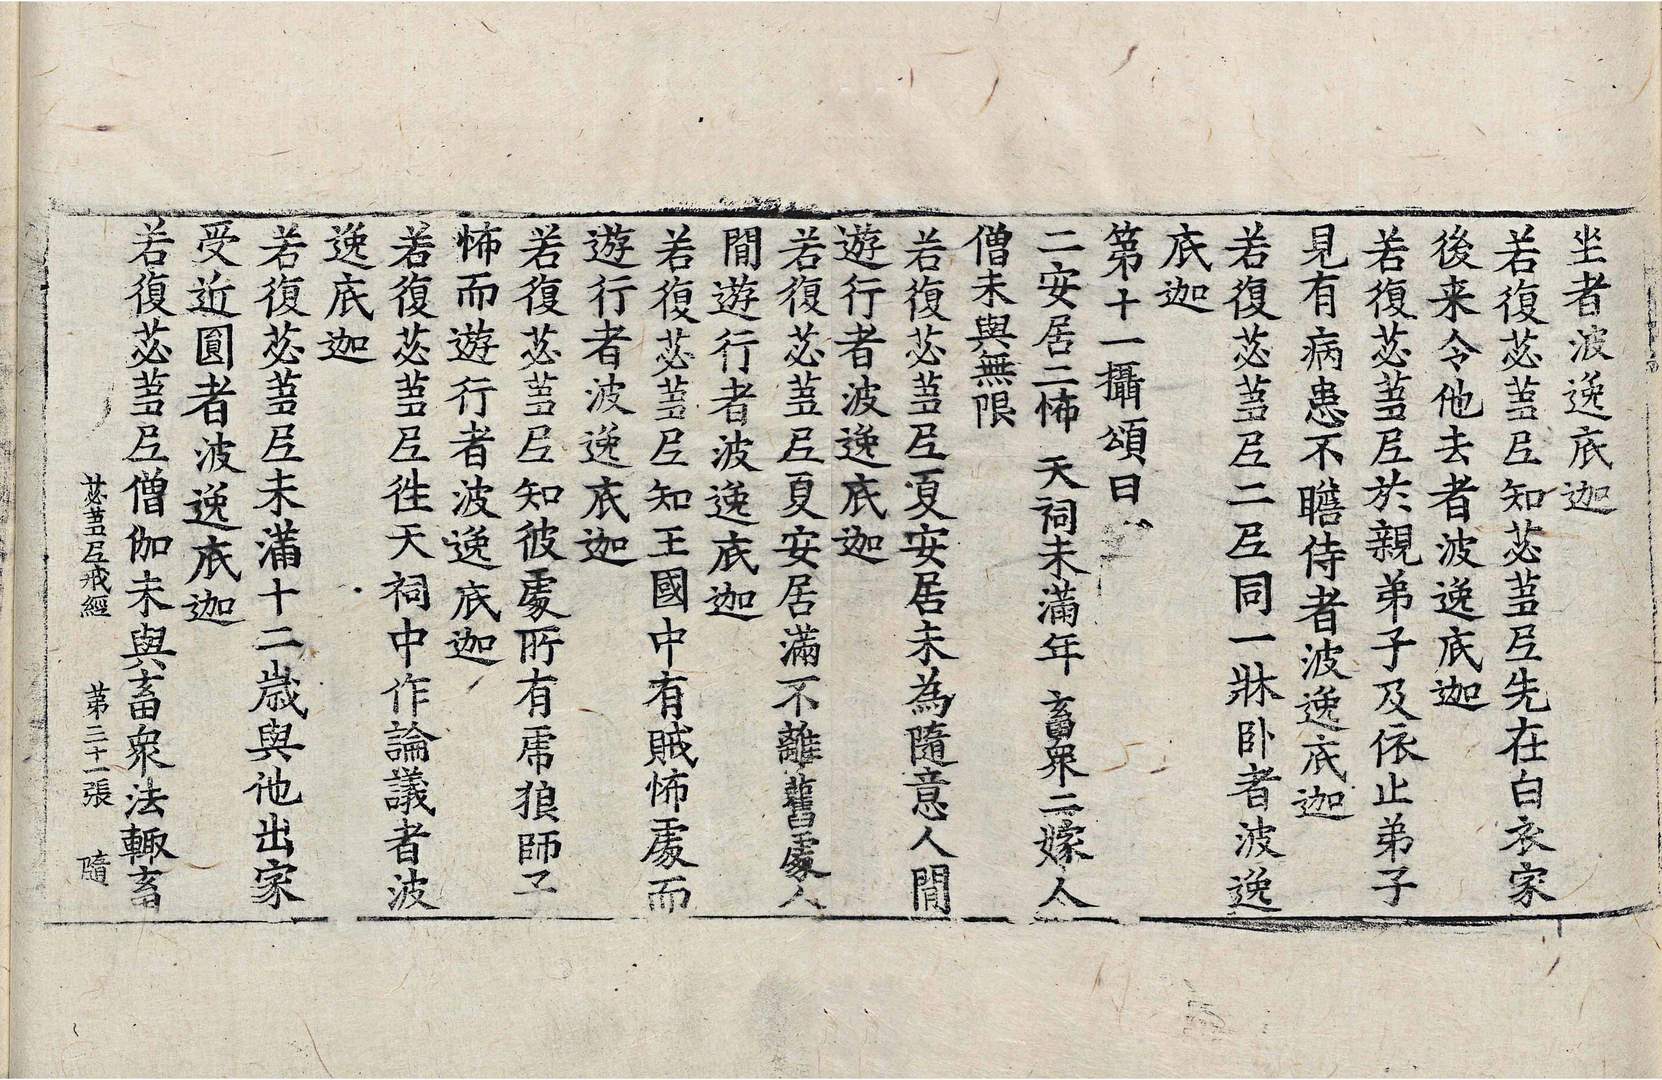 坐者波逸底迦
若復苾蒭尼知苾蒭尼先在白衣家
後来令他去者波逸底迦
若復苾蒭尼於親弟子及依止弟子
見有病患不瞻侍者波逸底迦
若復苾蒭尼二尼同一牀卧者波逸
底迦
第十一攝頌曰
二安居二怖 天祠未滿年 畜衆二嫁人
僧未與無限
若復苾蒭尼夏安居未為隨意人間
遊行者波逸底迦
若復苾蒭尼夏安居滿不離舊處人
間遊行者波逸底迦
若復苾蒭尼知王國中有賊怖處而
遊行者波逸底迦
若復苾蒭尼知彼處所有虎狼師子
怖而遊行者波逸底迦
若復苾蒭尼往天祠中作論議者波
逸底迦
若復苾蒭尼未滿十二歲與他出家
受近圓者波逸底迦
若復苾蒭尼僧伽未與畜衆法輙畜
苾蒭尼戒經 第二十一張 隨